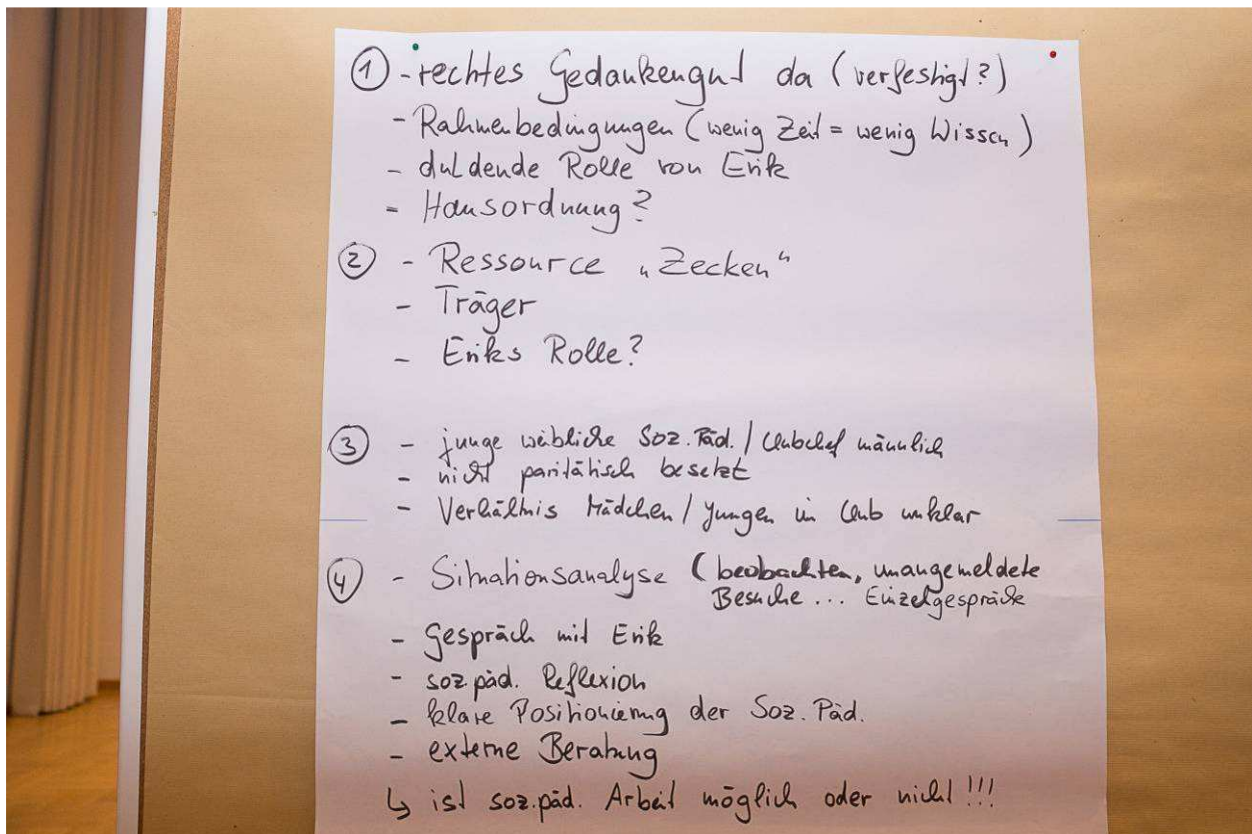 ① - rechtes Gedankengut da (verfestigt?)
- Rahmenbedingungen (wenig Zeit = wenig Wissen)
- duldende Rolle von Erik
- Hausordnung?
② - Ressource „Zecken“
- Träger
- Eriks Rolle?
③ - junge weibliche Soz.Päd. / Clubchef männlich
- nicht paritätisch besetzt
- Verhältnis Mädchen / Jungen in Club unklar
④ - Situationsanalyse (beobachten, unangemeldete
Besuche ... Einzelgespräche
- Gespräch mit Erik
- soz.päd. Reflexion
- klare Positionierung der Soz. Päd.
- externe Beratung
↳ ist soz.päd. Arbeit möglich oder nicht!!!